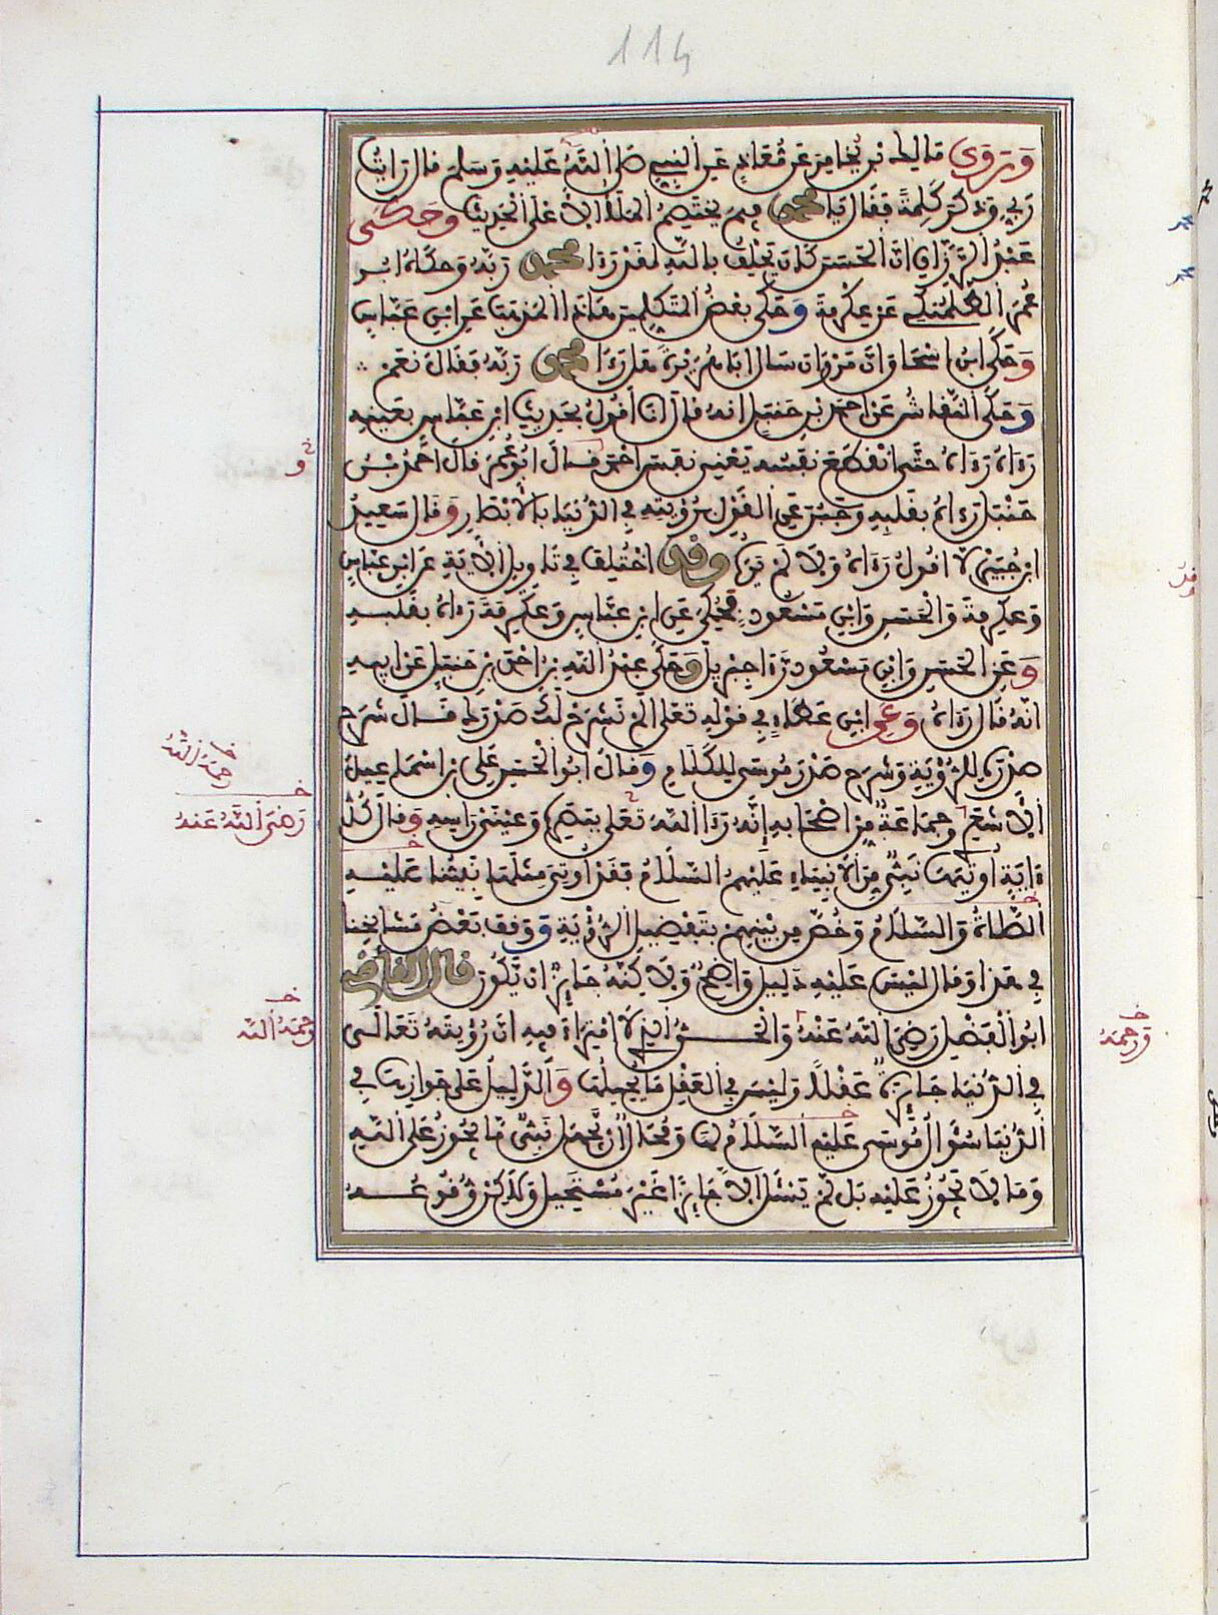 114
وَرَوَى مَالِكُ بْنُ يُخَامِرَ عَنْ مُعَاذٍ عَنِ النَّبِيِّ صَلَّى اللَّهُ عَلَيْهِ وَسَلَّمَ قَالَ رَأَيْتُ
رَبِّي وَذَكَرَ كَلِمَةً فَقَالَ يَا مُحَمَّدُ فِيمَ يَخْتَصِمُ الْمَلَأُ الْأَعْلَى الْحَدِيثَ وَحَكَى
عَبْدُ الرَّزَّاقِ أَنَّ الْحَسَنَ كَانَ يَحْلِفُ بِاللَّهِ لَقَدْ رَءَا مُحَمَّدٌ رَبَّهُ وَحَكَاهُ أَبُو
عُمَرَ الطَّلَمَنْكِي عَنْ عِكْرِمَةَ وَحَكَى بَعْضُ الْمُتَكَلِّمِينَ هَاذَا الْمَذْهَبَ عَنِ ابْنِ عَبَّاسٍ
وَحَكَى ابْنُ إِسْحَاقَ أَنَّ مَرْوَانَ سَأَلَ أَبَا هُرَيْرَةَ هَلْ رَءَا مُحَمَّدٌ رَبَّهُ فَقَالَ نَعَمْ
وَحَكَى النَّقَّاشُ عَنْ أَحْمَدَ بْنِ حَنْبَلٍ أَنَّهُ قَالَ أَنَا أَقُولُ بِحَدِيثِ ابْنِ عَبَّاسٍ بِعَيْنِهِ
رَءَاهُ رَءَاهُ حَتَّى انْقَطَعَ نَفَسُهُ يَعْنِي نَفَسَ أَحْمَدَ قَالَ أَبُو عُمَرَ قَالَ أَحْمَدُ بْنُ
حَنْبَلٍ رَءَاهُ بِقَلْبِهِ وَجَبُنَ عَنِ الْقَوْلِ بِرُؤْيَتِهِ فِي الدُّنْيَا بِالْأَبْصَارِ وَقَالَ سَعِيدُ
ابْنُ جُبَيْرٍ لَا أَقُولُ رَءَاهُ وَلَا لَمْ يَرَهُ وَقَدِ اخْتُلِفَ فِي تَأْوِيلِ الْآيَةِ عَنِ ابْنِ عَبَّاسٍ
وَعِكْرِمَةَ وَالْحَسَنِ وَابْنِ مَسْعُودٍ فَحُكِيَ عَنِ ابْنِ عَبَّاسٍ وَعِكْرِمَةَ رَءَاهُ بِقَلْبِهِ
وَعَنِ الْحَسَنِ وَابْنِ مَسْعُودٍ رَءَا جِبْرِيلَ وَحَكَى عَبْدُ اللَّهِ بْنُ أَحْمَدَ بْنِ حَنْبَلٍ عَنْ أَبِيهِ
أَنَّهُ قَالَ رَءَاهُ وَعَنِ ابْنِ عَطَاءٍ فِي قَوْلِهِ تَعَلَى أَلَمْ نَشْرَحْ لَكَ صَدْرَكَ قَالَ شَرَحَ
صَدْرَهُ لِلرُّؤْيَةِ وَشَرَحَ صَدْرَ مُوسَى لِلْكَلَامِ وَقَالَ أَبُو الْحَسَنِ عَلِيُّ بْنُ إِسْمَاعِيلَ
الْأَشْعَرِي وَجَمَاعَةٌ مِنْ أَصْحَابِهِ إِنَّهُ رَءَا اللَّهَ تَعَلَى بِبَصَرِهِ وَعَيْنَيْ رَأْسِهِ وَقَالَ كُلُّ
ءَايَةٍ أُوتِيَهَا نَبِيٌّ مِنَ الْأَنْبِيَاءِ عَلَيْهِمُ السَّلَامُ فَقَدْ أُوتِيَ مِثْلَهَا نَبِيُّنَا عَلَيْهِ
الصَّلَاةُ وَالسَّلَامُ وَخُصَّ مِنْ بَيْنِهِمْ بِتَفْضِيلِ الرُّؤْيَةِ وَوَقَفَ بَعْضُ مَشَايِخِنَا
فِي هَذَا وَقَالَ لَيْسَ عَلَيْهِ دَلِيلٌ وَاضِحٌ وَلَاكِنَّهُ جَائِزٌ أَنْ يَكُونَ قَالَ الْقَاضِي
أَبُو الْفَضْلِ رَضِيَ اللَّهُ عَنْهُ وَالْحَقُّ الَّذِي لَا امْتِرَاءَ فِيهِ أَنَّ رُؤْيَتَهُ تَعَالَى
فِي الدُّنْيَا جَائِزَةٌ عَقْلًا وَلَيْسَ فِي الْعَقْلِ مَا يُحِيلُهَا وَالدَّلِيلُ عَلَى جَوَازِهَا فِي
الدُّنْيَا سُؤَالُ مُوسَى عَلَيْهِ السَّلَامُ لَهَا وَمُحَالٌ أَنْ يَجْهَلَ نَبِيٌّ مَا يَجُوزُ عَلَى اللَّهِ
وَمَا لَا يَجُوزُ عَلَيْهِ بَلْ لَمْ يَسْئَلْ إِلَّا جَائِزًا غَيْرَ مُسْتَحِيلٍ وَلَكِنْ وُقُوعُهُ
خ و
خ رحمه الله
خ رَضِيَ اللَّهُ عَنْهُ
خ رَحِمَهُ اللَّه